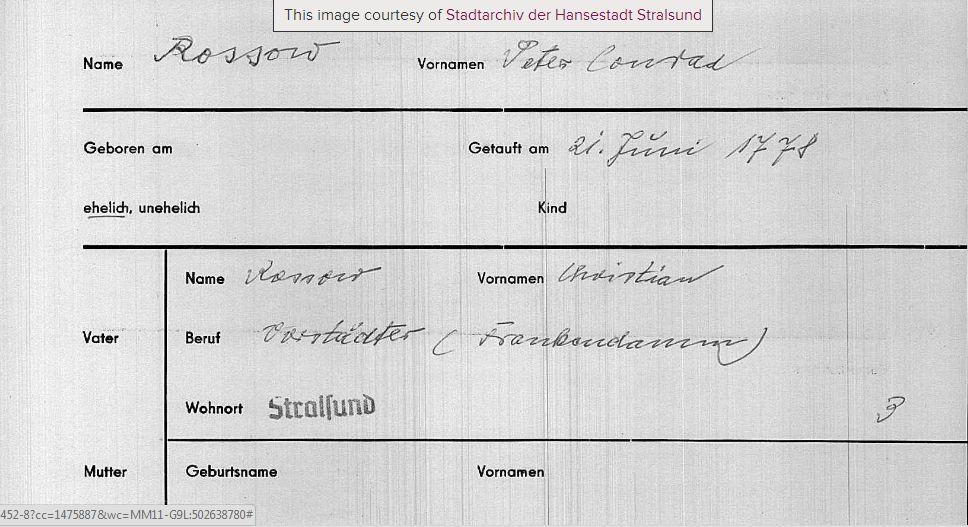 This image courtesy of Stadtarchiv der Hansestadt Stralsund
Name Rossow Vornamen Peter Conrad
Geboren am Getauft am 21. Juni 1778
ehelich, unehelich Kind
Name Rossow Vornamen Christian
Vater Beruf Vorstädter (Frankendamm)
Wohnort Stralsund 3
Mutter Geburtsname Vornamen
452-8?cc=1475887&wc=MM11-G9L:502638780#